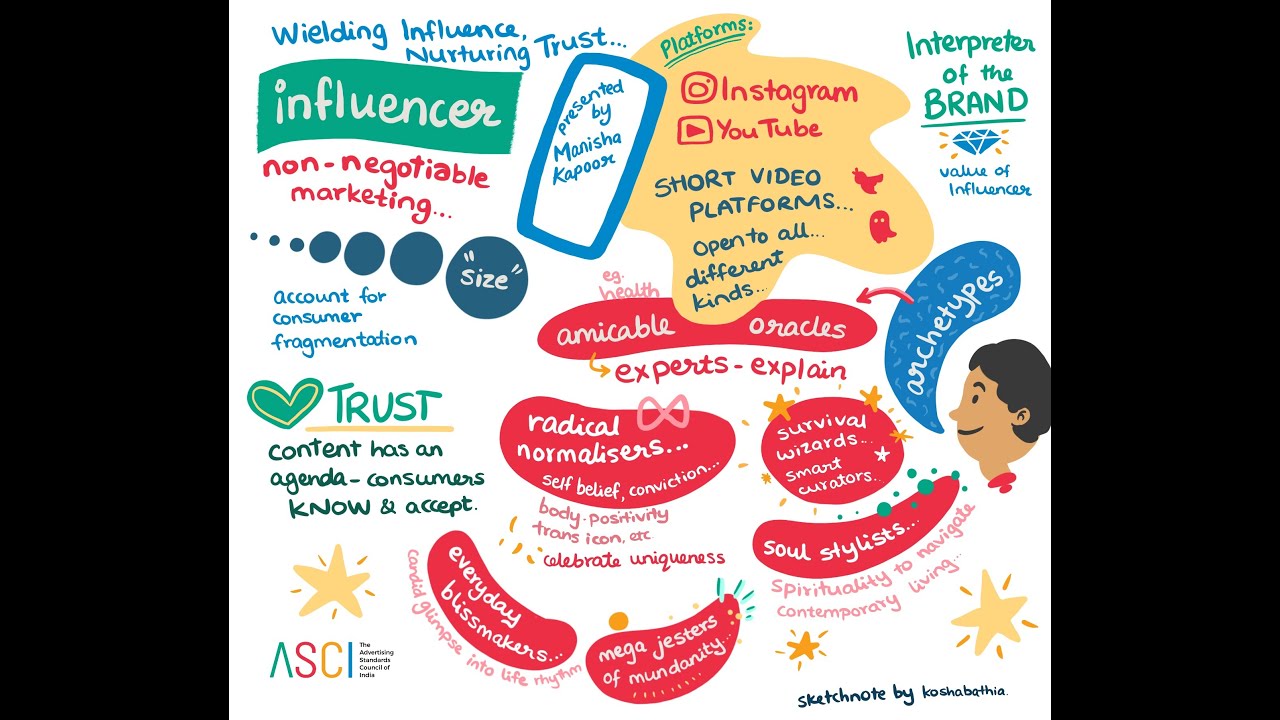 Wielding Influence,
Nurturing Trust...
influencer
non-negotiable
marketing...
"size"
account for
consumer
fragmentation
TRUST
content has an
agenda - consumers
KNOW & accept.
presented
by
Manisha
Kapoor
Platforms:
Instagram
YouTube
SHORT VIDEO
PLATFORMS...
open to all...
different
kinds...
Interpreter
of the
BRAND
value of
Influencer
archetypes
eg.
health
amicable oracles
experts - explain
radical
normalisers...
self belief, conviction...
body-positivity
trans icon, etc
celebrate uniqueness
survival
wizards...
smart
curators..
soul stylists...
spirituality to navigate
contemporary living...
everyday
blissmakers...
candid glimpse into life rhythm
mega jesters
of mundanity...
ASCI
The
Advertising
Standards
Council of
India
sketchnote by koshabathia.